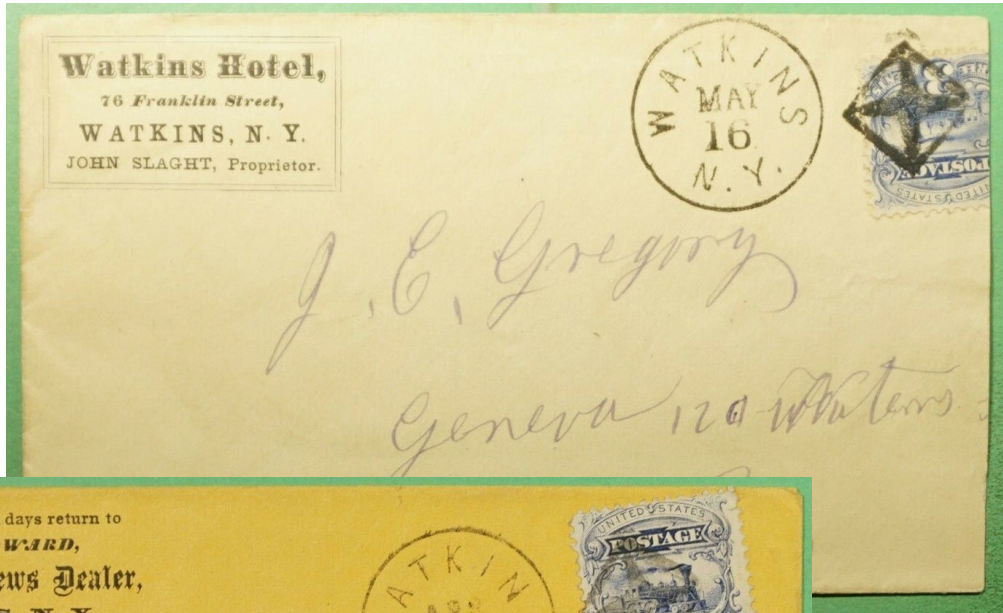 Watkins Hotel,
76 Franklin Street,
WATKINS, N. Y.
JOHN SLAGHT, Proprietor.
WATKINS
MAY
16
N. Y.
3
POSTAGE
UNITED STATES
J. C. Gregory
Geneva
days return to
WARD,
ews Dealer,
N. Y.
ATKIN
APR
UNITED STATES
POSTAGE